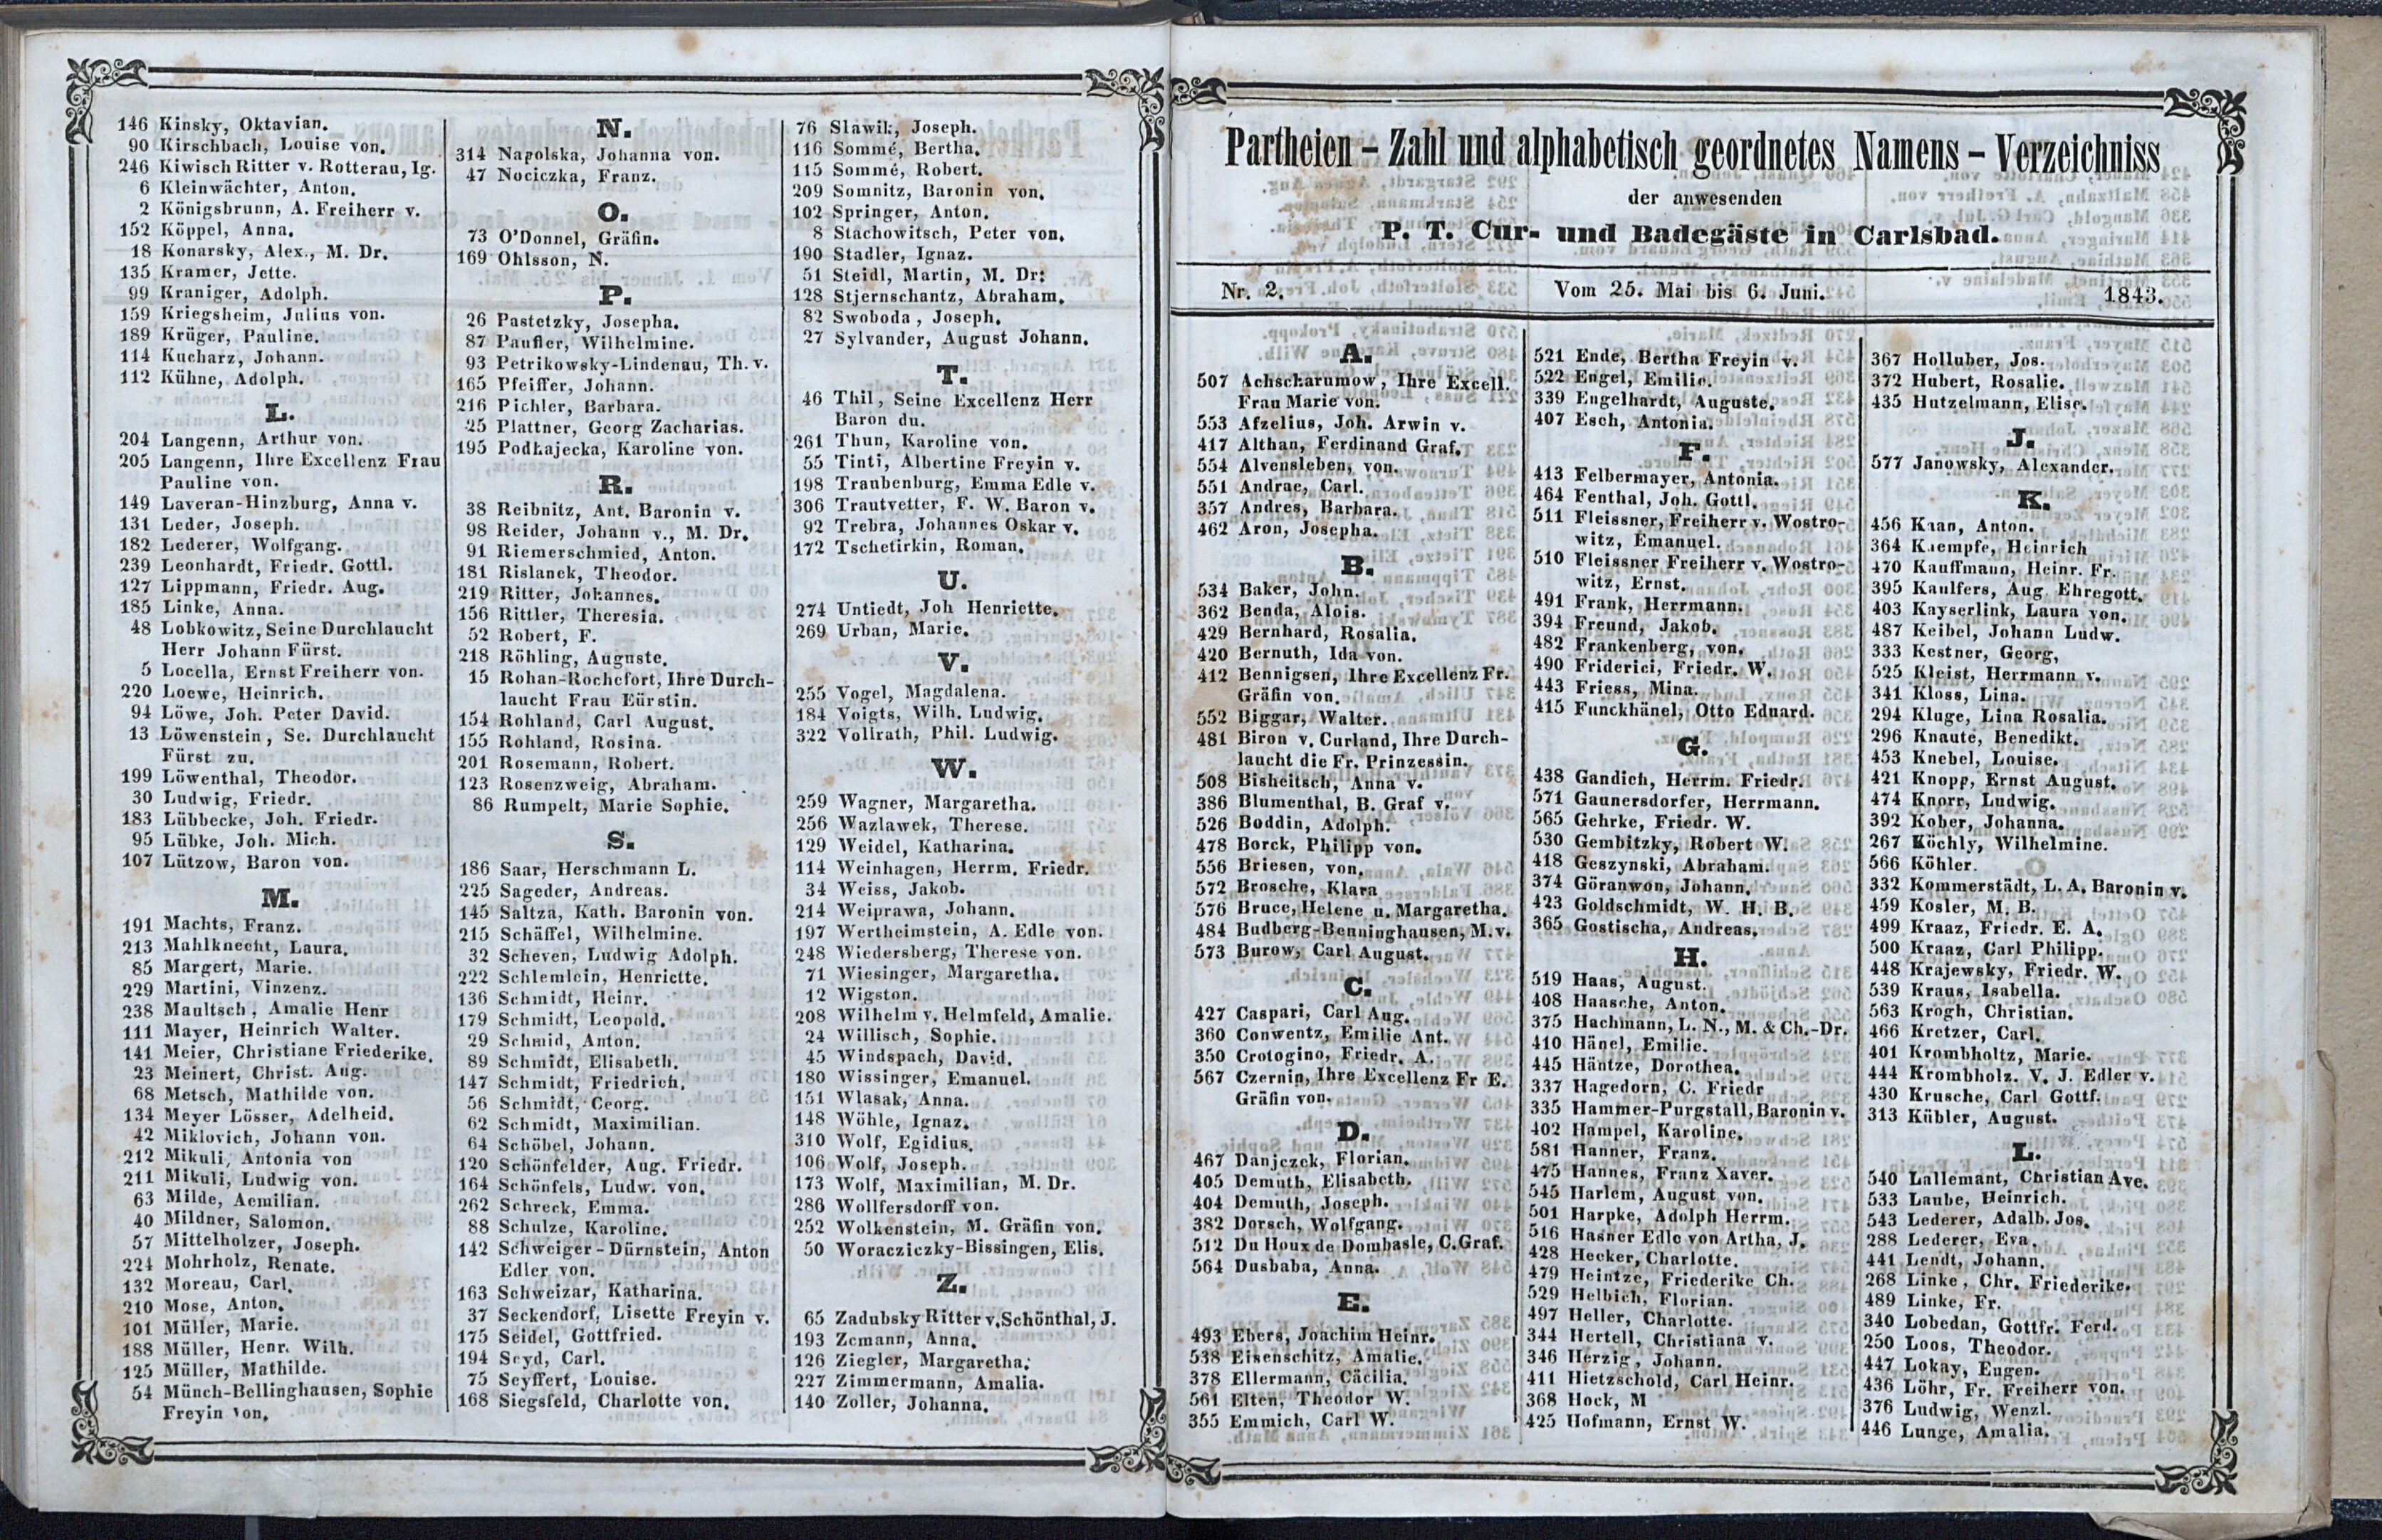 146 Kinsky, Oktavian.
90 Kirschbach, Louise von.
246 Kiwisch Ritter v. Rotterau, Ig.
6 Kleinwächter, Anton.
2 Königsbrunn, A. Freiherr v.
152 Köppel, Anna.
18 Konarsky, Alex., M. Dr.
135 Kramer, Jette.
99 Kraniger, Adolph.
159 Kriegsheim, Julius von.
189 Krüger, Pauline.
114 Kucharz, Johann.
112 Kühne, Adolph.
L.
204 Langenn, Arthur von.
205 Langenn, Ihre Excellenz Frau
Pauline von.
149 Laveran-Hinzburg, Anna v.
131 Leder, Joseph.
182 Lederer, Wolfgang.
239 Leonhardt, Friedr. Gottl.
127 Lippmann, Friedr. Aug.
185 Linke, Anna.
48 Lobkowitz, Seine Durchlaucht
Herr Johann Fürst.
5 Locella, Ernst Freiherr von.
220 Loewe, Heinrich.
94 Löwe, Joh. Peter David.
13 Löwenstein, Se. Durchlaucht
Fürst zu.
199 Löwenthal, Theodor.
30 Ludwig, Friedr.
183 Lübbecke, Joh. Friedr.
95 Lübke, Joh. Mich.
107 Lützow, Baron von.
M.
191 Machts, Franz.
213 Mahlknecht, Laura.
85 Margert, Marie.
229 Martini, Vinzenz.
238 Maultsch, Amalie Henr
111 Mayer, Heinrich Walter.
141 Meier, Christiane Friederike.
23 Meinert, Christ. Aug.
68 Metsch, Mathilde von.
134 Meyer Lösser, Adelheid.
42 Miklovich, Johann von.
212 Mikuli, Antonia von
211 Mikuli, Ludwig von.
63 Milde, Aemilian.
40 Mildner, Salomon.
57 Mittelholzer, Joseph.
224 Mohrholz, Renate.
132 Moreau, Carl.
210 Mose, Anton.
101 Müller, Marie.
188 Müller, Henr. Wilh.
125 Müller, Mathilde.
54 Münch-Bellinghausen, Sophie
Freyin von.
N.
314 Napolska, Johanna von.
47 Nociczka, Franz.
O.
73 O'Donnel, Gräfin.
169 Ohlsson, N.
P.
26 Pastetzky, Josepha.
87 Paufler, Wilhelmine.
93 Petrikowsky-Lindenau, Th. v.
165 Pfeiffer, Johann.
216 Pichler, Barbara.
25 Plattner, Georg Zacharias.
195 Podhajecka, Karoline von.
R.
38 Reibnitz, Ant. Baronin v.
98 Reider, Johann v., M. Dr.
91 Riemerschmied, Anton.
181 Rislanek, Theodor.
219 Ritter, Johannes.
156 Rittler, Theresia.
52 Robert, F.
218 Röhling, Auguste.
15 Rohan-Rochefort, Ihre Durch-
laucht Frau Eürstin.
154 Rohland, Carl August.
155 Rohland, Rosina.
201 Rosemann, Robert.
123 Rosenzweig, Abraham.
86 Rumpelt, Marie Sophie.
S.
186 Saar, Herschmann L.
225 Sageder, Andreas.
145 Saltza, Kath. Baronin von.
215 Schäffel, Wilhelmine.
32 Scheven, Ludwig Adolph.
222 Schlemlein, Henriette.
136 Schmidt, Heinr.
179 Schmidt, Leopold.
29 Schmid, Anton.
89 Schmidt, Elisabeth.
147 Schmidt, Friedrich.
56 Schmidt, Georg.
62 Schmidt, Maximilian.
64 Schöbel, Johann.
120 Schönfelder, Aug. Friedr.
164 Schönfels, Ludw. von.
262 Schreck, Emma.
88 Schulze, Karoline.
142 Schweiger-Dürnstein, Anton
Edler von.
163 Schweizar, Katharina.
37 Seckendorf, Lisette Freyin v.
175 Seidel, Gottfried.
194 Seyd, Carl.
75 Seyffert, Louise.
168 Siegsfeld, Charlotte von.
76 Slawik, Joseph.
116 Sommé, Bertha.
115 Sommé, Robert.
209 Somnitz, Baronin von.
102 Springer, Anton.
8 Stachowitsch, Peter von.
190 Stadler, Ignaz.
51 Steidl, Martin, M. Dr:
128 Stjernschantz, Abraham.
82 Swoboda, Joseph.
27 Sylvander, August Johann.
T.
46 Thil, Seine Excellenz Herr
Baron du.
261 Thun, Karoline von.
55 Tinti, Albertine Freyin v.
198 Traubenburg, Emma Edle v.
306 Trautvetter, F. W. Baron v.
92 Trebra, Johannes Oskar v.
172 Tschetirkin, Roman.
U.
274 Untiedt, Joh Henriette.
269 Urban, Marie.
V.
255 Vogel, Magdalena.
184 Voigts, Wilh. Ludwig.
322 Vollrath, Phil. Ludwig.
W.
259 Wagner, Margaretha.
256 Wazlawek, Therese.
129 Weidel, Katharina.
114 Weinhagen, Herrm. Friedr.
34 Weiss, Jakob.
214 Weiprawa, Johann.
197 Wertheimstein, A. Edle von.
248 Wiedersberg, Therese von.
71 Wiesinger, Margaretha.
12 Wigston.
208 Wilhelm v. Helmfeld, Amalie.
24 Willisch, Sophie.
45 Windspach, David.
180 Wissinger, Emanuel.
151 Wlasak, Anna.
148 Wöhle, Ignaz.
310 Wolf, Egidius.
106 Wolf, Joseph.
173 Wolf, Maximilian, M. Dr.
286 Wollfersdorff von.
252 Wolkenstein, M. Gräfin von.
50 Woracziczky-Bissingen, Elis.
Z.
65 Zadubsky Ritter v. Schönthal, J.
193 Zemann, Anna.
126 Ziegler, Margaretha.
227 Zimmermann, Amalia.
140 Zoller, Johanna.
Partheien-Zahl und alphabetisch geordnetes Namens-Verzeichniss
der anwesenden
P. T. Cur- und Badegäste in Carlsbad.
Nr. 2. Vom 25. Mai bis 6. Juni. 1843.
A.
507 Achscharumow, Ihre Excell.
Frau Marie von.
553 Afzelius, Joh. Arwin v.
417 Althan, Ferdinand Graf.
554 Alvensleben, von.
551 Andrae, Carl.
357 Andres, Barbara.
462 Aron, Josepha.
B.
534 Baker, John.
362 Benda, Alois.
429 Bernhard, Rosalia.
420 Bernuth, Ida von.
412 Bennigsen, Ihre Excellenz Fr.
Gräfin von.
552 Biggar, Walter.
481 Biron v. Curland, Ihre Durch-
laucht die Fr. Prinzessin.
508 Bisheitsch, Anna v.
386 Blumenthal, B. Graf v.
526 Boddin, Adolph.
478 Borck, Philipp von.
556 Briesen, von.
572 Brosche, Klara
576 Bruce, Helene u. Margaretha.
484 Budberg-Benninghausen, M. v.
573 Burow, Carl August.
C.
427 Caspari, Carl Aug.
360 Conwentz, Emilie Ant.
350 Crotogino, Friedr. A.
567 Czernin, Ihre Excellenz Fr E.
Gräfin von.
D.
467 Danjczek, Florian.
405 Demuth, Elisabeth.
404 Demuth, Joseph.
382 Dorsch, Wolfgang.
512 Du Houx de Dombasle, C. Graf.
564 Dusbaba, Anna.
E.
493 Ebers, Joachim Heinr.
538 Eisenschitz, Amalie.
378 Ellermann, Cäcilia.
561 Elten, Theodor W.
355 Emmich, Carl W.
521 Ende, Bertha Freyin v.
522 Engel, Emilie.
339 Engelhardt, Auguste.
407 Esch, Antonia.
F.
413 Felbermayer, Antonia.
464 Fenthal, Joh. Gottl.
511 Fleissner, Freiherr v. Wostro-
witz, Emanuel.
510 Fleissner Freiherr v. Wostro-
witz, Ernst.
491 Frank, Herrmann.
394 Freund, Jakob.
482 Frankenberg, von.
490 Friderici, Friedr. W.
443 Friess, Mina.
415 Funckhänel, Otto Eduard.
G.
438 Gandich, Herrm. Friedr.
571 Gaunersdorfer, Herrmann.
565 Gehrke, Friedr. W.
530 Gembitzky, Robert W.
418 Geszynski, Abraham.
374 Göranwon, Johann.
423 Goldschmidt, W. H. B.
365 Gostischa, Andreas.
H.
519 Haas, August.
408 Haasche, Anton.
375 Hachmann, L. N., M. & Ch.-Dr.
410 Hänel, Emilie.
445 Häntze, Dorothea.
337 Hagedorn, C. Friedr
335 Hammer-Purgstall, Baronin v.
402 Hampel, Karoline.
581 Hanner, Franz.
475 Hannes, Franz Xaver.
545 Harlem, August von.
501 Harpke, Adolph Herrm.
516 Hasner Edle von Artha, J.
428 Hecker, Charlotte.
479 Heintze, Friederike Ch.
529 Helbich, Florian.
497 Heller, Charlotte.
344 Hertell, Christiana v.
346 Herzig, Johann.
411 Hietzschold, Carl Heinr.
368 Hock, M
425 Hofmann, Ernst W.
367 Holluber, Jos.
372 Hubert, Rosalie.
435 Hutzelmann, Elise.
J.
577 Janowsky, Alexander.
K.
456 Kaan, Anton.
364 Kaempfe, Heinrich
470 Kauffmann, Heinr. Fr.
395 Kaulfers, Aug Ehregott.
403 Kayserlink, Laura von.
487 Keibel, Johann Ludw.
333 Kestner, Georg,
525 Kleist, Herrmann v.
341 Kloss, Lina.
294 Kluge, Lina Rosalia.
296 Knaute, Benedikt.
453 Knebel, Louise.
421 Knopp, Ernst August.
474 Knorr, Ludwig.
392 Kober, Johanna.
267 Köchly, Wilhelmine.
566 Köhler.
332 Kommerstädt, L. A. Baronin v.
459 Kosler, M. B.
499 Kraaz, Friedr. E. A.
500 Kraaz, Carl Philipp.
448 Krajewsky, Friedr. W.
539 Kraus, Isabella.
563 Krogh, Christian.
466 Kretzer, Carl.
401 Krombholtz, Marie.
444 Krombholz. V. J. Edler v.
430 Krusche, Carl Gottf.
313 Kübler, August.
L.
540 Lallemant, Christian Ave.
533 Laube, Heinrich.
543 Lederer, Adalb. Jos.
288 Lederer, Eva.
441 Lendt, Johann.
268 Linke, Chr. Friederike.
489 Linke, Fr.
340 Lobedan, Gottfr. Ferd.
250 Loos, Theodor.
447 Lokay, Eugen.
436 Löhr, Fr. Freiherr von.
376 Ludwig, Wenzl.
446 Lunge, Amalia.